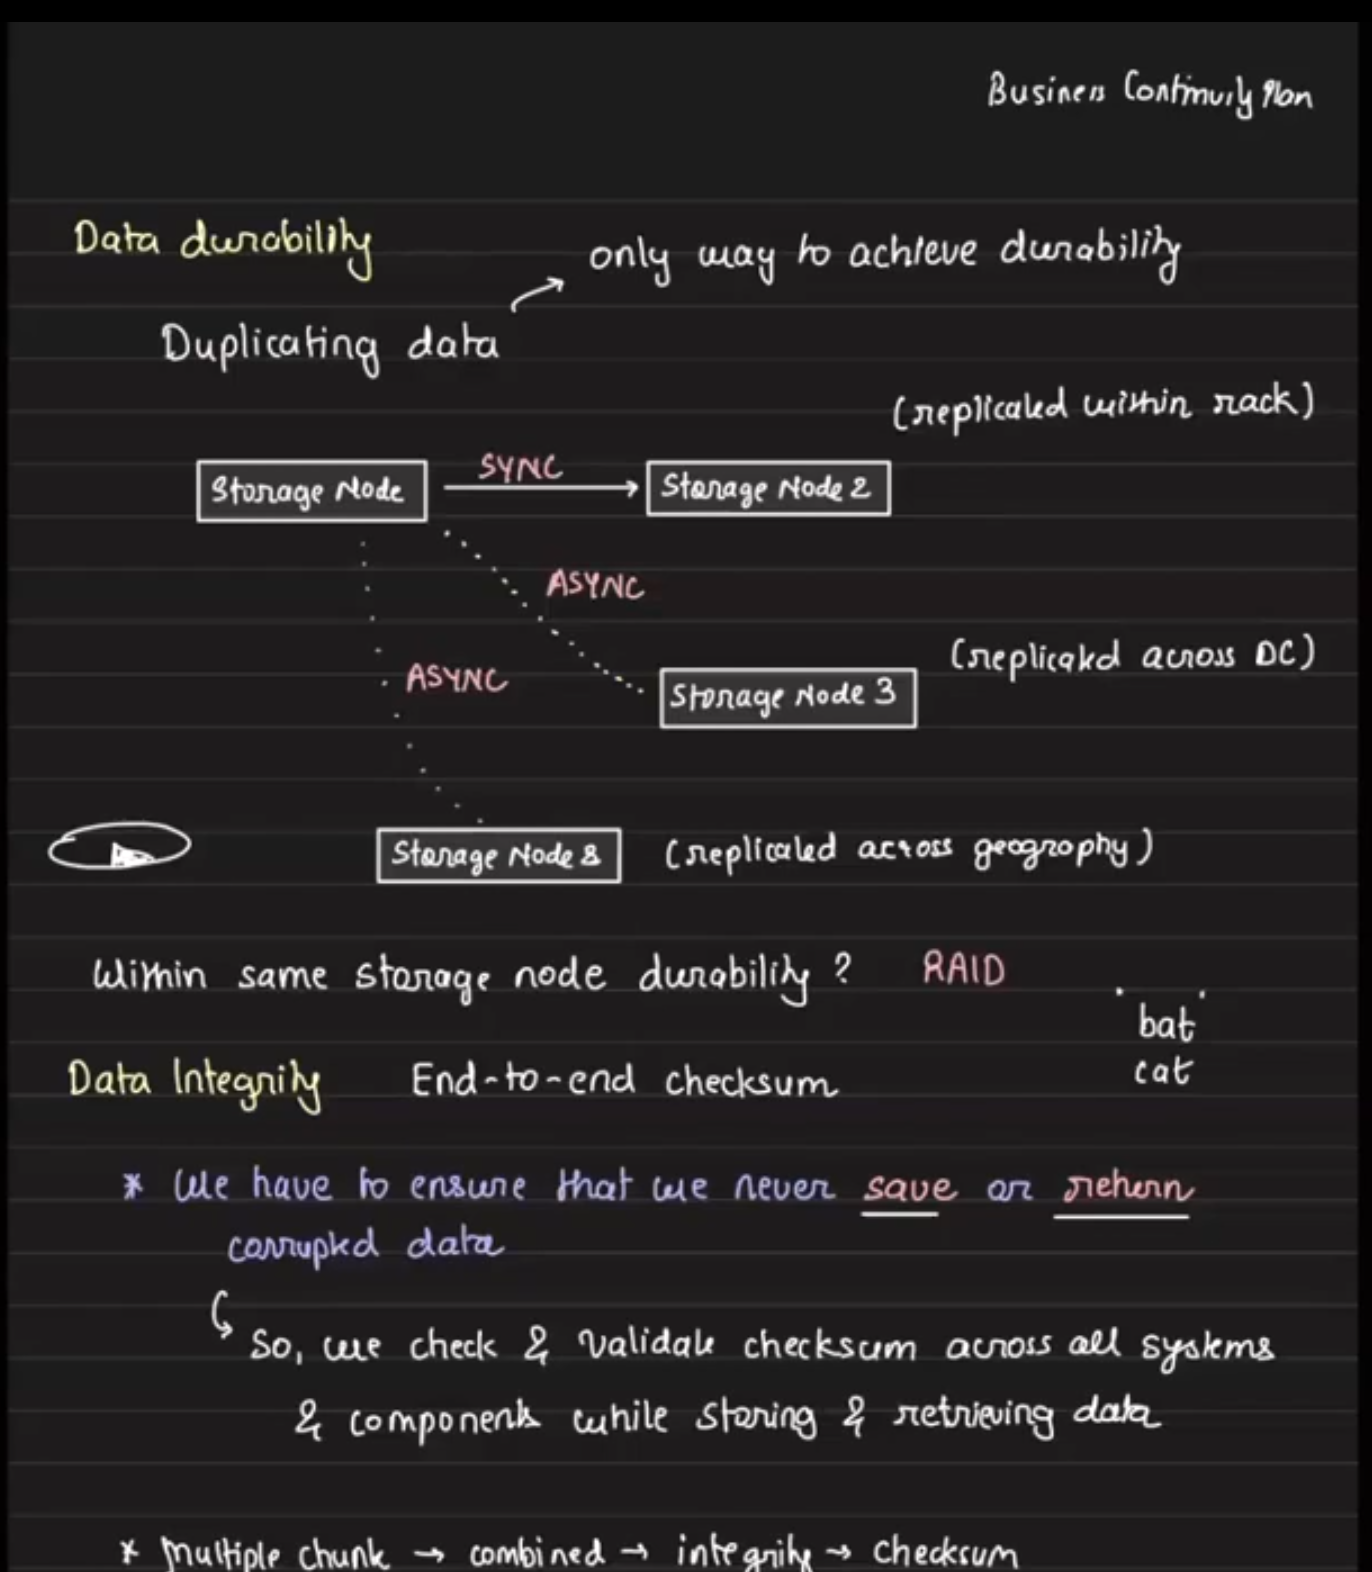 Business Continuity Plan
Data durability
only way to achieve durability
Duplicating data
(replicated within rack)
Storage Node
SYNC
Storage Node 2
ASYNC
(replicated across DC)
ASYNC
Storage Node 3
Storage Node 8
(replicated across geography)
Within same storage node durability? RAID
bat
Data Integrity End-to-end checksum
cat
* We have to ensure that we never save or return
corrupted data
So, we check & validate checksum across all systems
& components while storing & retrieving data
* Multiple chunk → combined → integrity → checksum